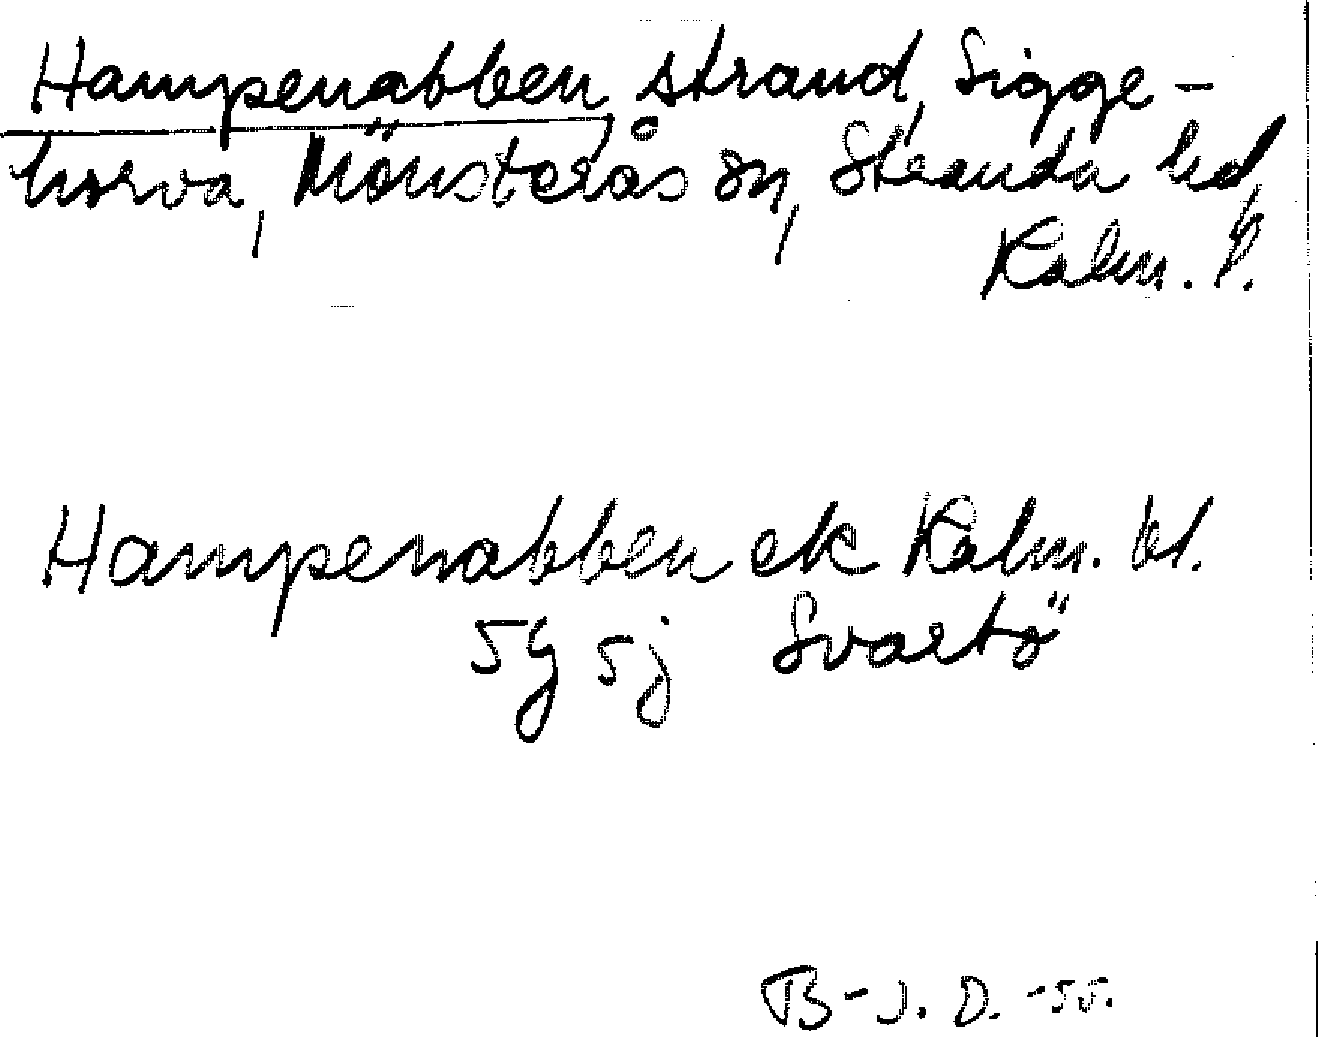 Hampenabben, strand, Sigge-
horva, Mönsterås sn, Stranda hd,
Kalm. l.
Hampenabben ek Kalm. bl.
5g 5j Svartö
B-J. D. -55.